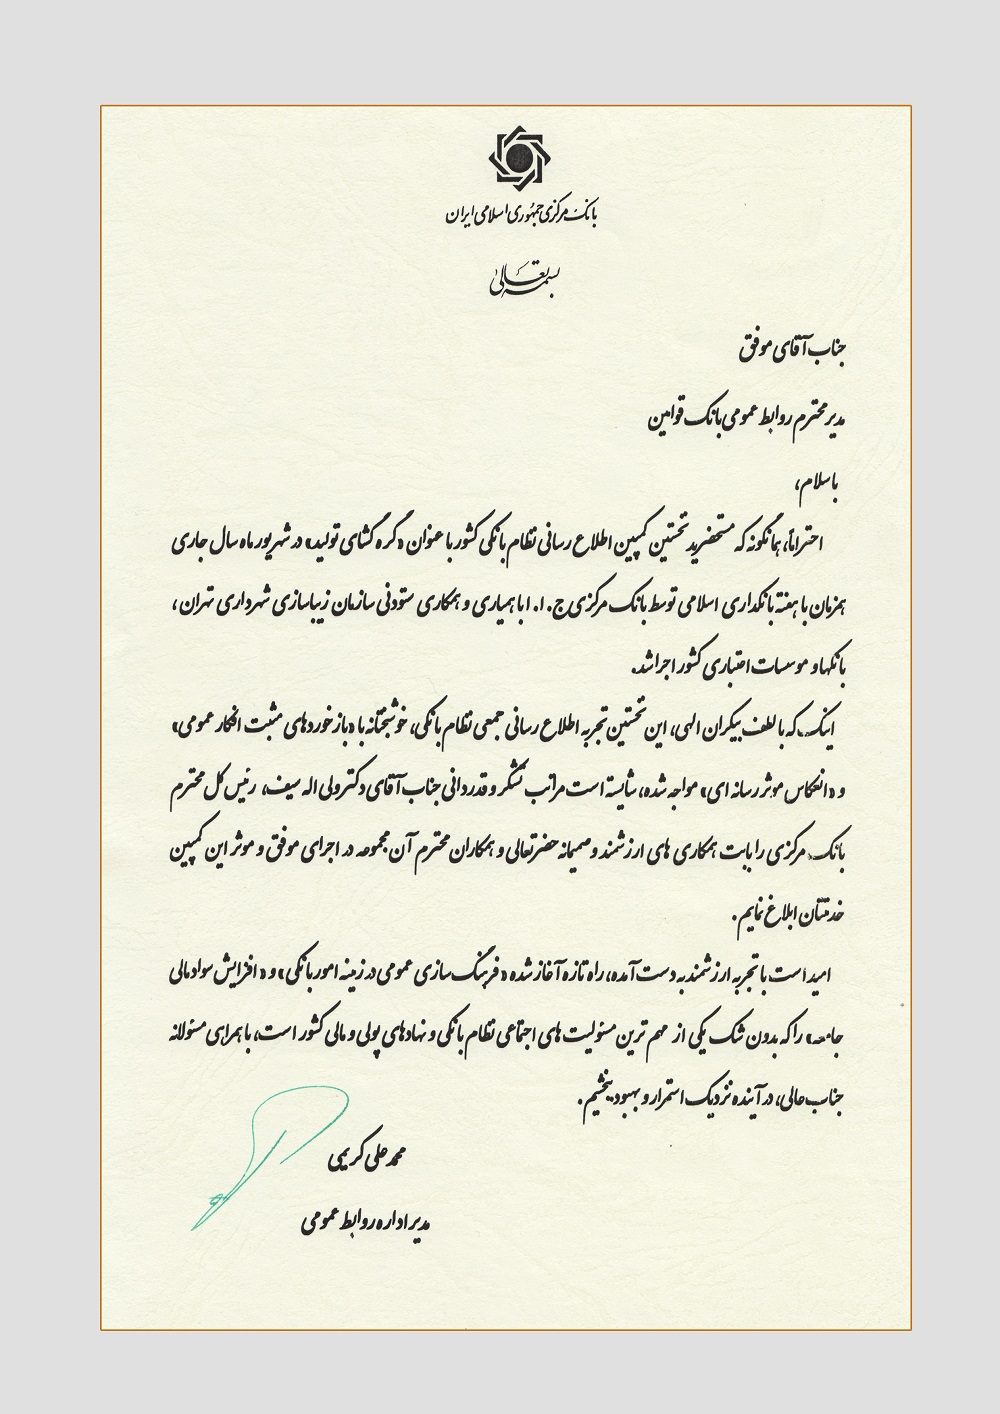 بانک مرکزی جمهوری اسلامی ایران
بسمه تعالی
جناب آقای موفق
مدیر محترم روابط عمومی بانک قوامین
با سلام،
احتراماً، همانگونه که مستحضرید نخستین کمپین اطلاع رسانی نظام بانکی کشور با عنوان «گره گشای تولید» در شهریور ماه سال جاری
همزمان با هفته بانکداری اسلامی توسط بانک مرکزی ج.ا.ا با همیاری و همکاری ستودنی سازمان زیباسازی شهرداری تهران،
بانکها و موسسات اعتباری کشور اجرا شد.
اینک که با لطف بیکران الهی، این نخستین تجربه اطلاع رسانی جمعی نظام بانکی، خوشبختانه با «بازخوردهای مثبت افکار عمومی»
و «انعکاس موثر رسانه ای» مواجه شده، شایسته است مراتب تشکر و قدردانی جناب آقای دکتر ولی اله سیف، رئیس کل محترم
بانک مرکزی را بابت همکاری های ارزشمند و صمیمانه حضرتعالی و همکاران محترم آن مجموعه در اجرای موفق و موثر این کمپین
خدمتتان ابلاغ نمایم.
امید است با تجربه ارزشمند به دست آمده، راه تازه آغاز شده «فرهنگ سازی عمومی در زمینه امور بانکی» و «افزایش سواد مالی
جامعه» را که بدون شک یکی از مهم ترین مسئولیت های اجتماعی نظام بانکی و نهادهای پولی و مالی کشور است، با همراهی مسئولانه
جناب عالی، در آینده نزدیک استمرار و بهبود بخشیم.
محمد علی کریمی
مدیر اداره روابط عمومی